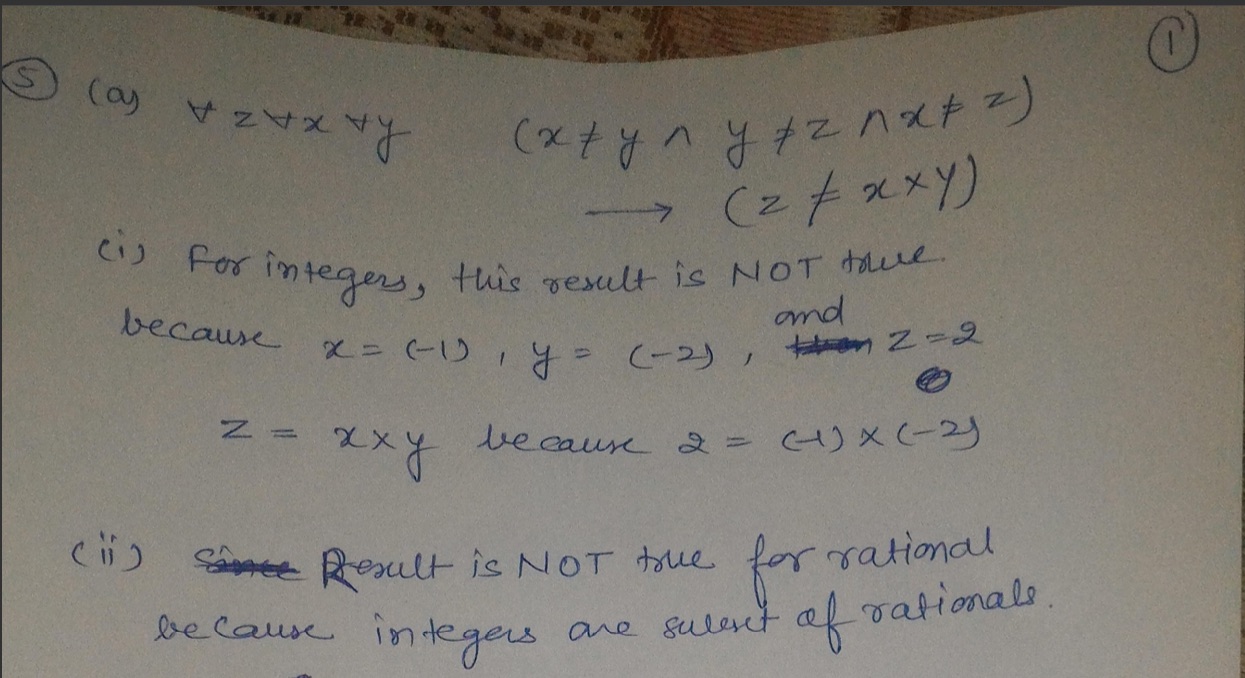 ①
⑤ (a) ∀z∀x∀y (x≠y ∧ y≠z ∧ x≠z)
→ (z ≠ x×y)
(i) For integers, this result is NOT true.
because x = (-1), y = (-2), and z=2
z = x×y because 2 = (-1)×(-2)
(ii) Result is NOT true for rational
because integers are subset of rationals.